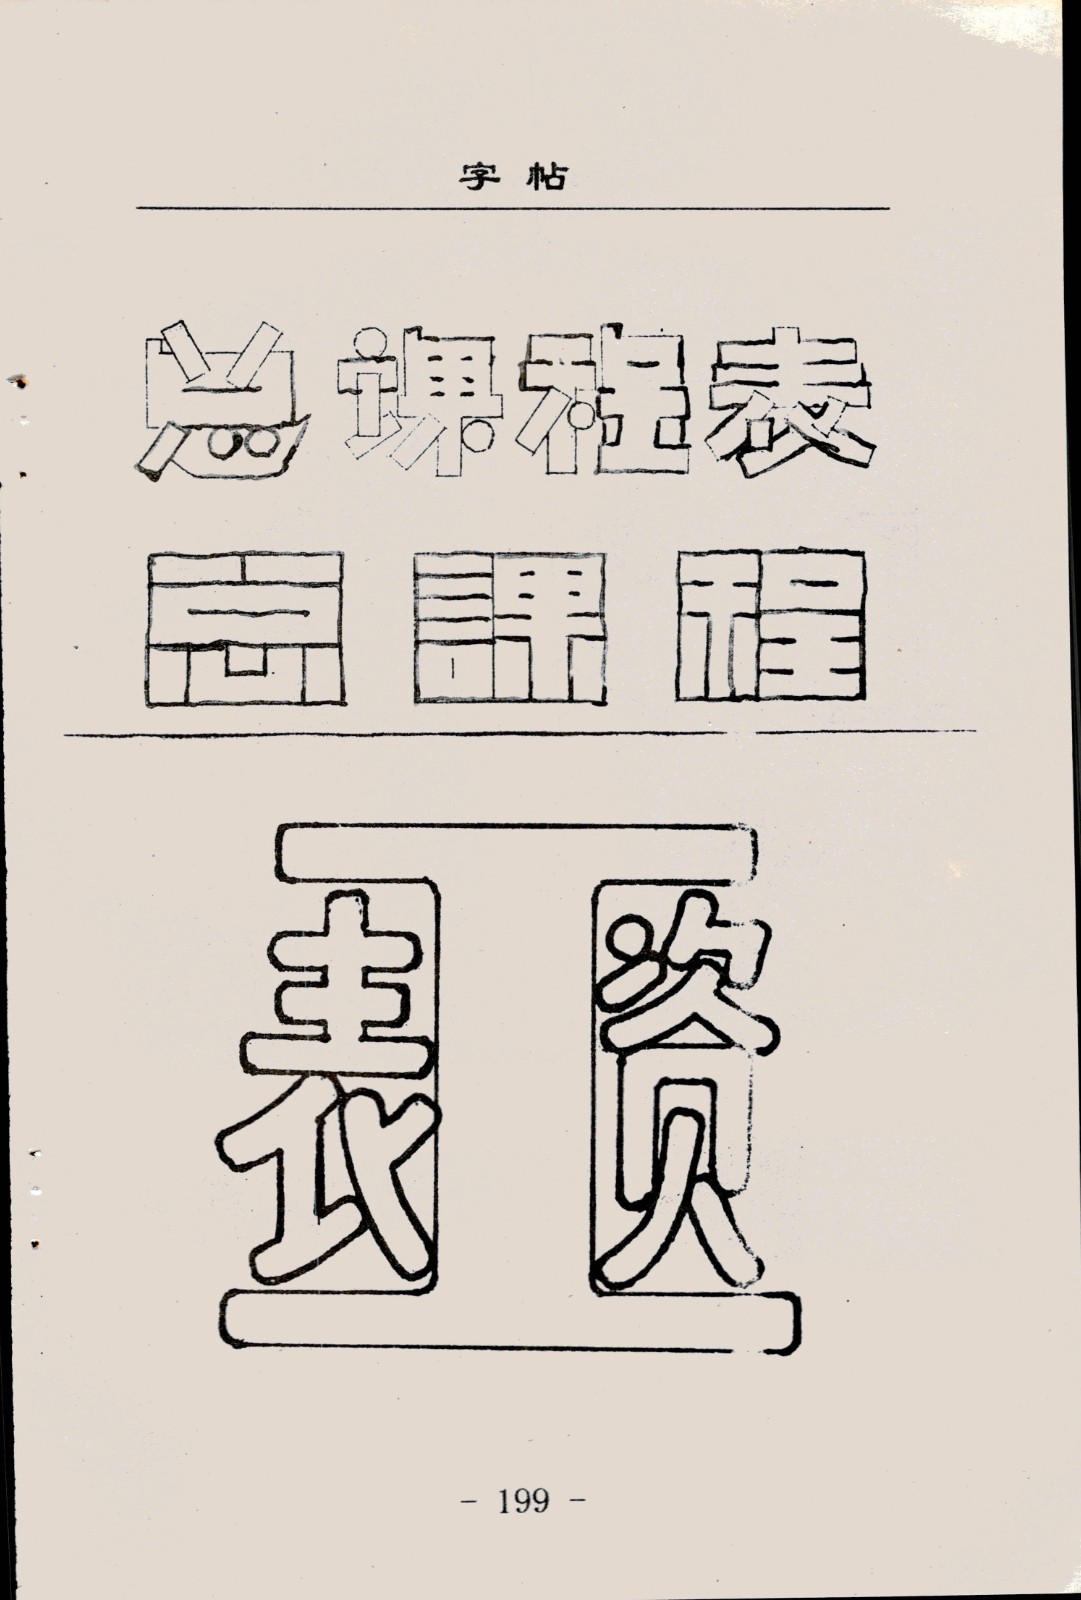 字帖
总课程表
总課程
工资表
- 199 -